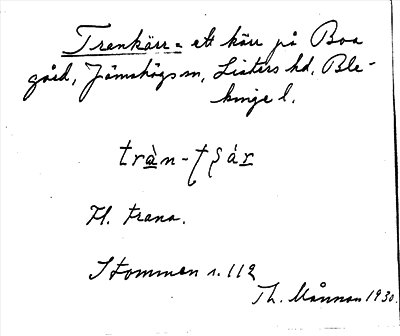 Trenkärr = ett kärr på Boa
gård, Jämshögs sn, Listers hd, Ble-
kinge l.
tràn-tʃár
Tl. trana.
Stommen s. 112
Th. Månnson 1930.